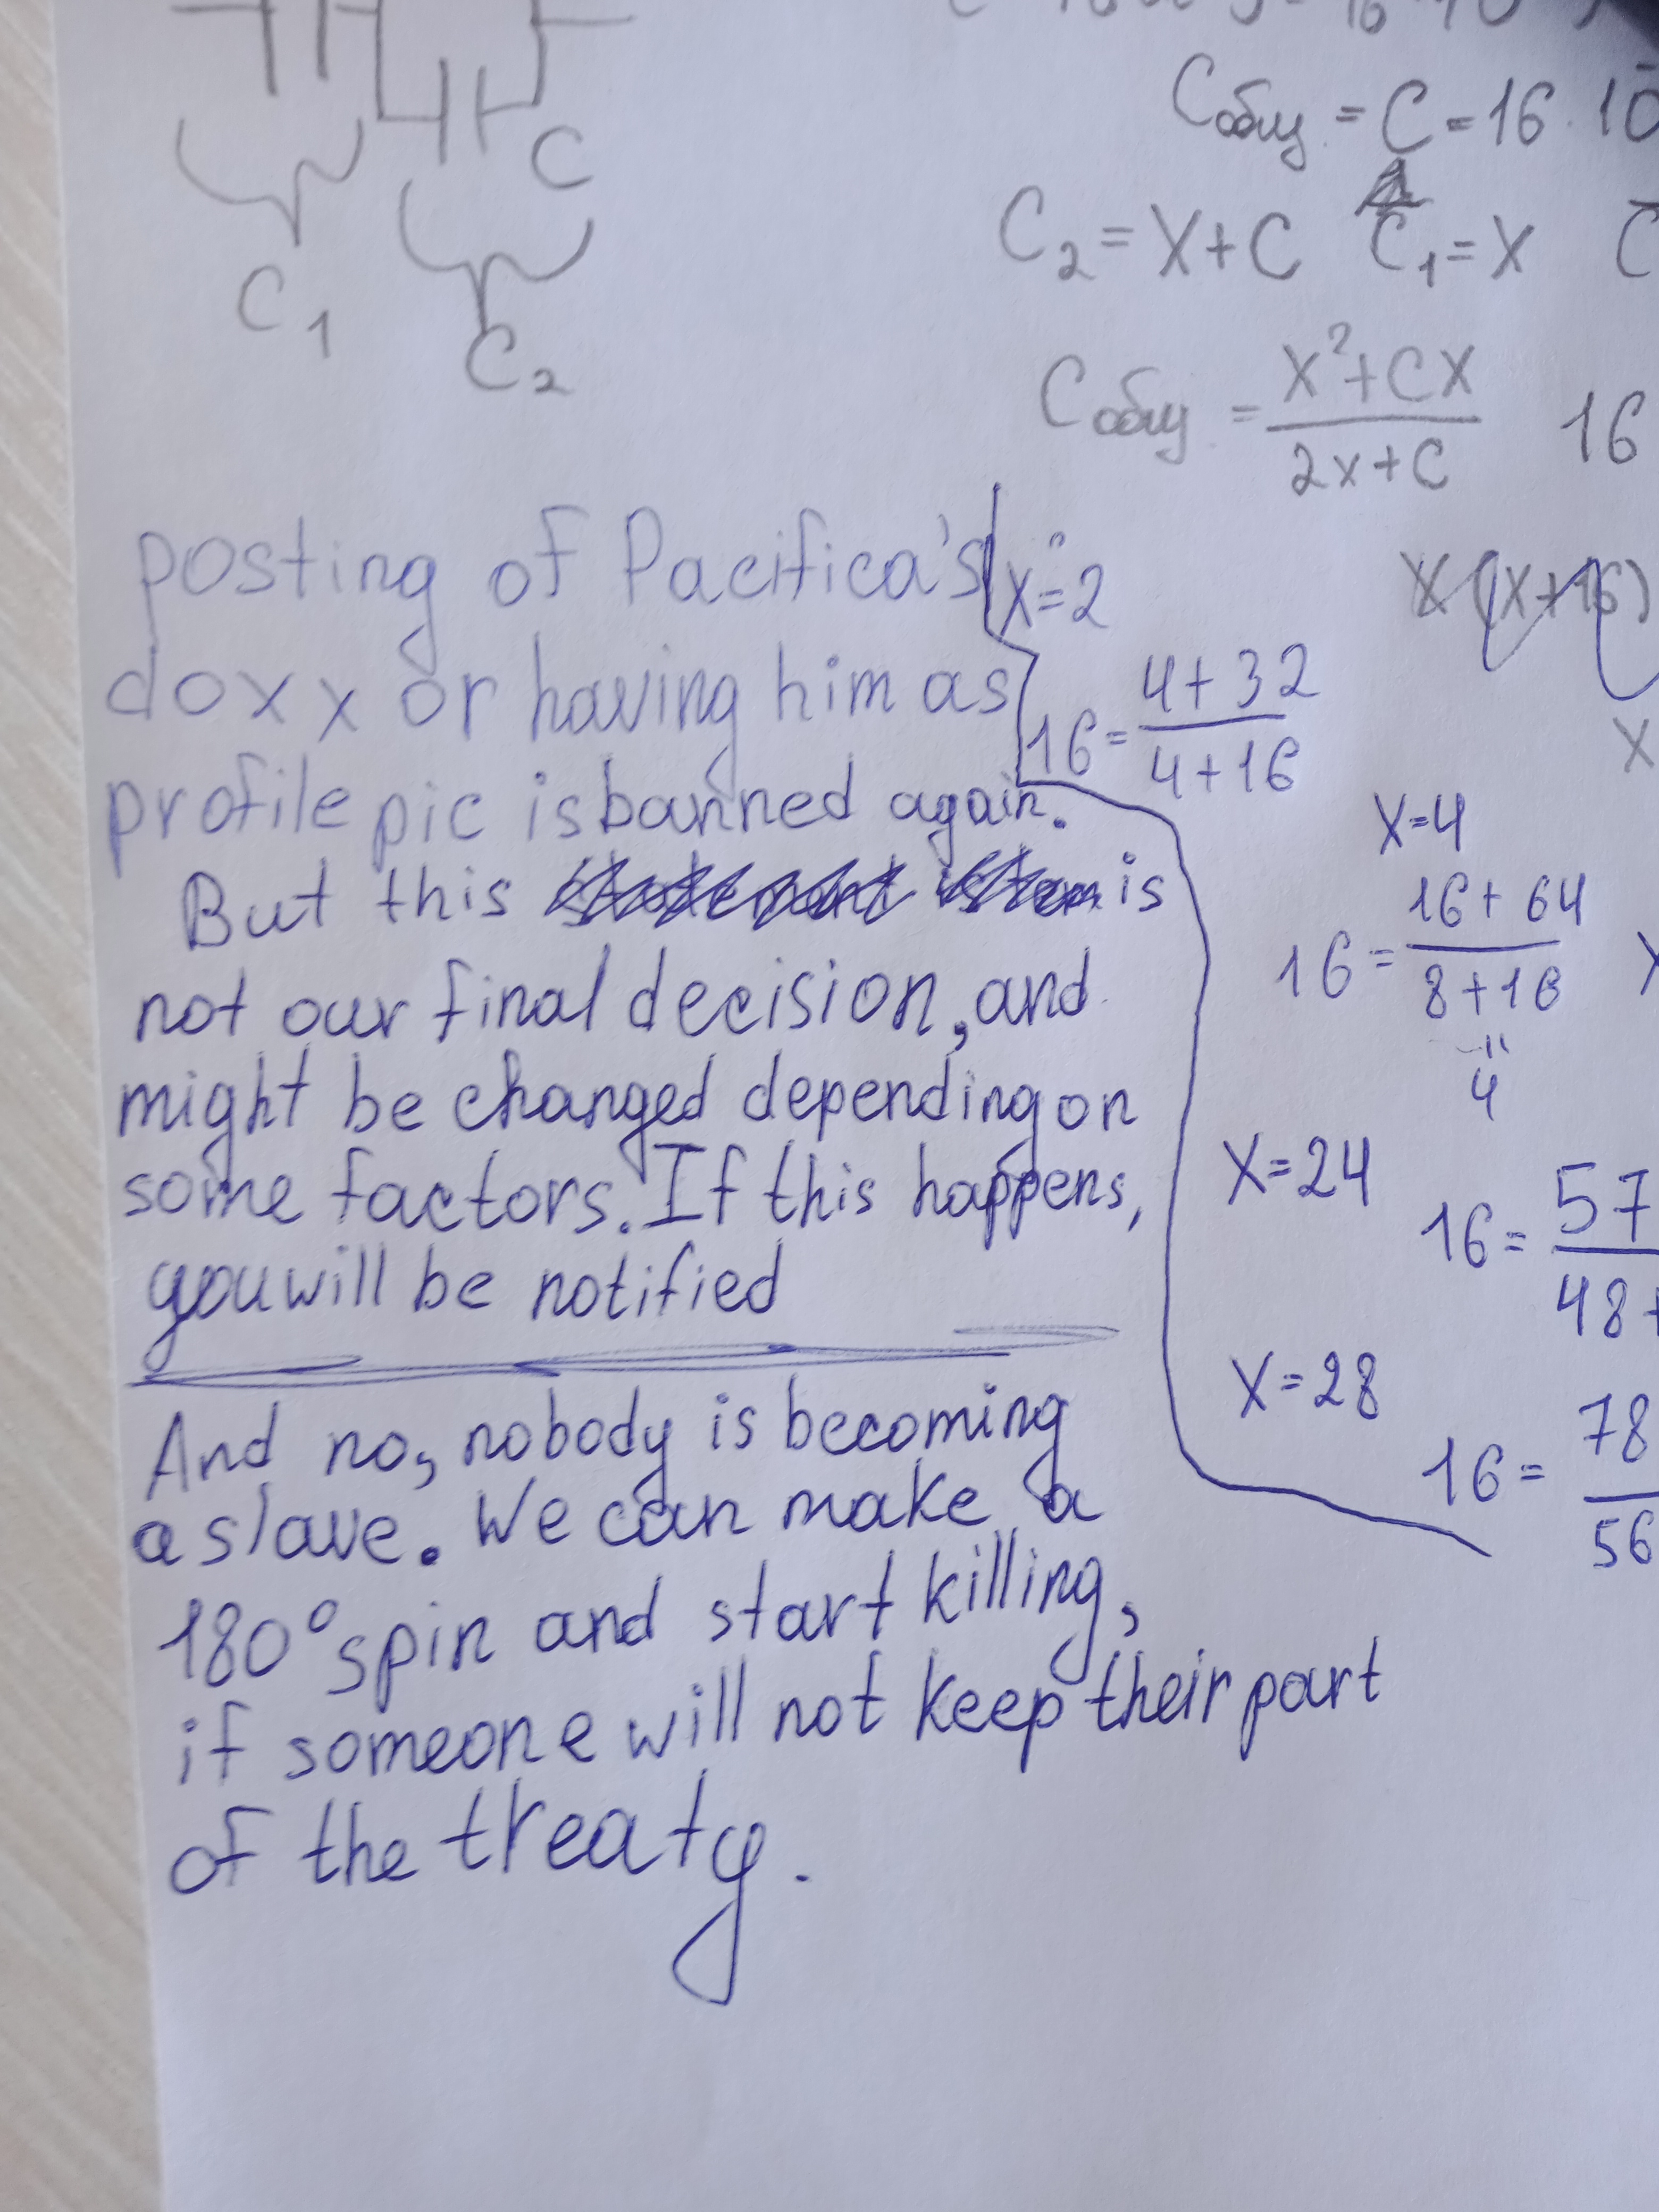 C
C₁
C₂
Cобщ = C = 16 · 10
C₂ = X+C C₁ = X
Cобщ = (X²+CX)/(2x+C) 16
X(X+16)
X
posting of Pacifica's
doxx or having him as
profile pic is banned again.
But this is
not our final decision, and
might be changed depending on
some factors. If this happens,
you will be notified
And no, nobody is becoming
a slave. We can make a
180° spin and start killing,
if someone will not keep their part
of the treaty.
X=2
16 = (4+32)/(4+16)
X=4
16 = (16+64)/(8+16)
"
4
X=24
16 = 57/48+
X=28
16 = 78/56